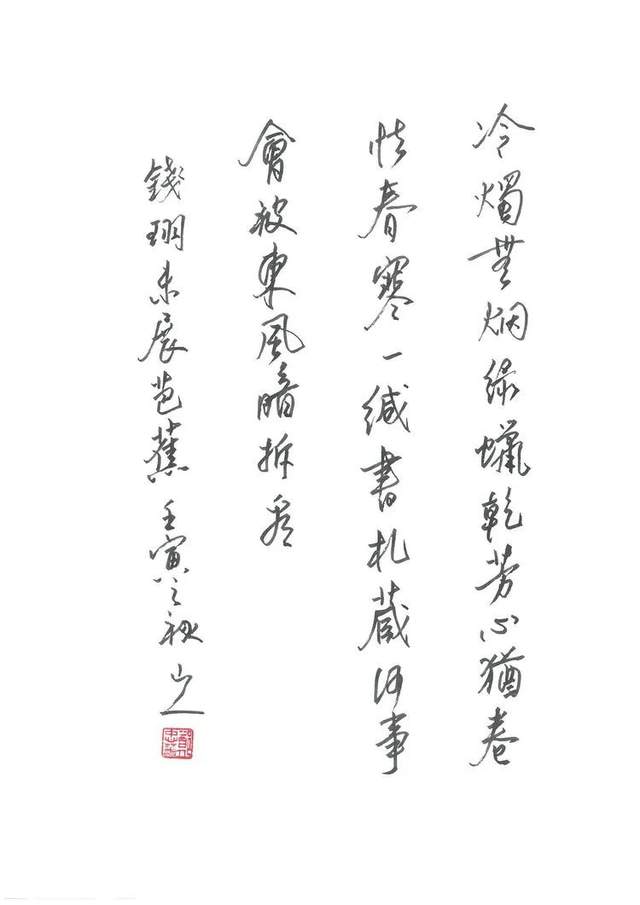 冷燭無烟綠蠟乾芳心猶卷
怯春寒一緘書札藏何事
會被東風暗拆看
錢珝未展芭蕉壬寅之秋山人